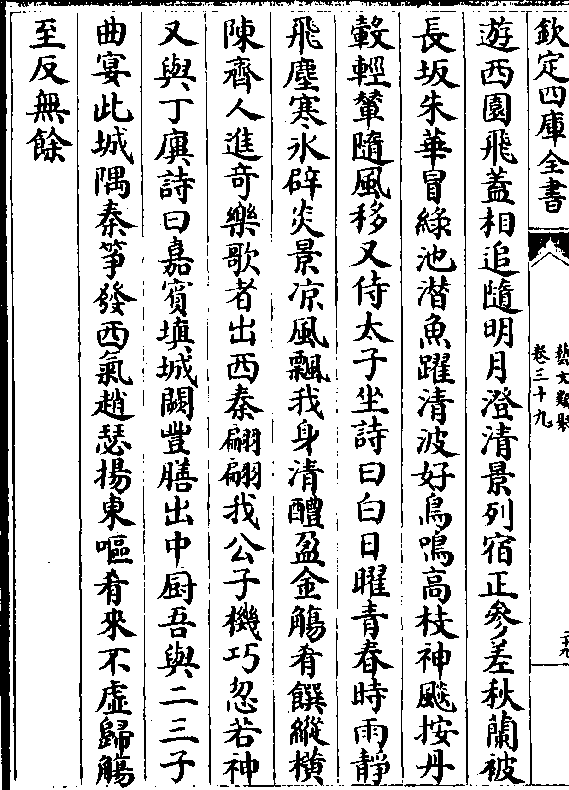 欽定四庫全書
藝文類聚
卷三十九
遊西園飛蓋相追隨明月澄清景列宿正參差秋蘭被
長坂朱華冒綠池潛魚躍清波好鳥鳴高枝神飈按丹
轂輕輦隨風移又侍太子坐詩曰白日曜青春時雨靜
飛塵寒氷辟炎景凉風飄我身清醴盈金觴肴饌縱橫
陳齊人進奇樂歌者出西秦翩翩我公子機巧忽若神
又與丁廙詩曰嘉賓填城闕豐膳出中厨吾與二三子
曲宴此城隅秦箏發西氣趙瑟揚東嘔肴來不虛歸觴
至反無餘